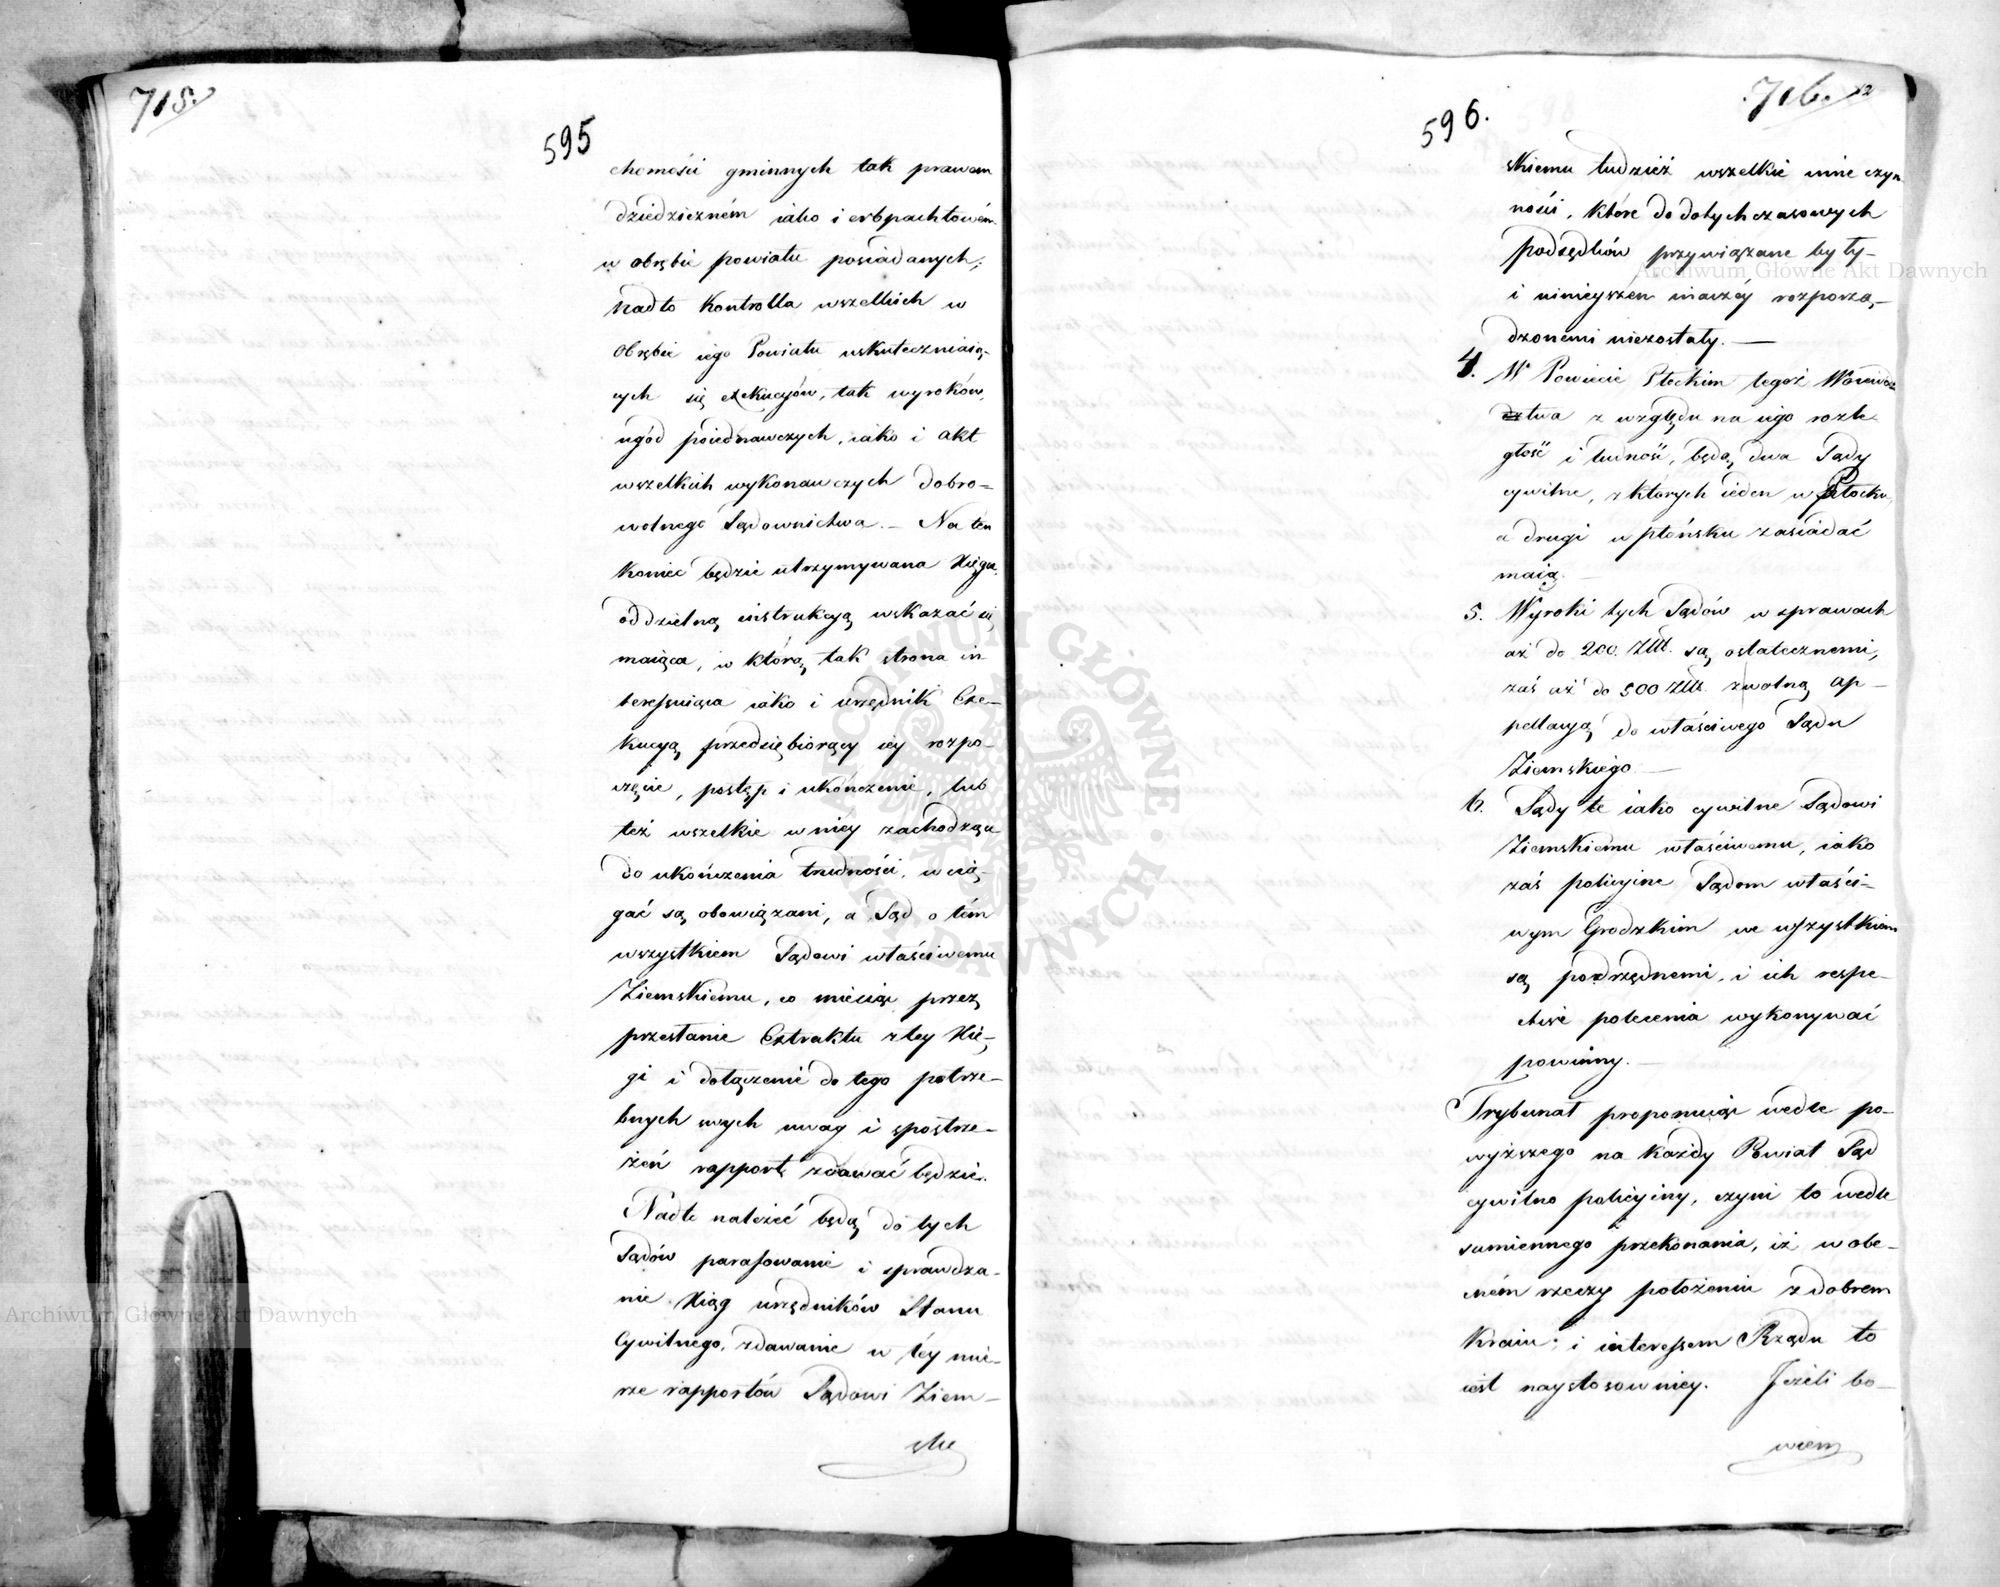 715.
595
chomości gminnych tak prawem
dziedziczném iako i erbpachtowém
w obrębie powiatu posiadanych;
Nadto Kontrolla wszelkich w
obrębie iego Powiatu uskuteczniaią-
cych się exekucyów, tak wyroków,
ugód poiednawczych, iako i akt
wszelkich wykonawczych dobro-
wolnego Sądownictwa. – Na ten
koniec będzie utrzymywana Xięga,
oddzielną instrukcyą wskazać się
maiąca, w którą tak strona in
teressuiąca iako i urzędnik Exe-
kucyą przedsiębiorący iey rozpo-
częcie, postęp i ukończenie, lub
też wszelkie w niey zachodzące
do ukończenia trudności, wcią-
gać są obowiązani, a Sąd o tém
wszystkiem Sądowi właściwemu
Ziemskiemu, co miesiąc przez
przesłanie Extraktu z tey Xię-
gi i dołączenie do tego potrze-
bnych swych uwag i spostrze-
żeń rapport zdawać będzie.
Nadto należeć będą do tych
Sądów parafowanie i sprawdza-
nie Xiąg urzędników Stanu
Cywilnego, zdawanie w téy mie-
rze rapportów Sądowi Ziem-
skie
716.
12
596.
skiemu tudzież wszelkie inne czyn
ności, które do dotychczasowych
podsędków przywiązane były-
i ninieyszém inaczéy rozporzą-
dzonemi niezostały. —
4. W Powiecie Płockim tegoż Woiewódz
dztwa z względu na iego rozle-
głość i ludność, będą dwa Sądy
cywilne, z których ieden w Płocku,
a drugi w Płońsku zasiadać
maią. —
5. Wyroki tych Sądów w sprawach
aż do 200. Złł. są ostatecznemi,
zaś aż do 500 Złł. z wolną ap-
pellacyą do właściwego Sądu
Ziemskiego —
6. Sądy te iako cywilne Sądowi
Ziemskiemu właściwemu, iako
zaś policyine Sądom właści-
wym Grodzkim we wszystkiem
są podrzędnemi, i ich respe-
ctive polecenia wykonywać
powinny. —
Trybunał proponuiąc wedle po-
wyższego na każdy Powiat Sąd
cywilno policyiny, czyni to wedle
sumiennego przekonania, iż w obe-
cném rzeczy położeniu z dobrem
Kraiu i interessem Rządu to
iest naystosowniey. Jeżeli bo-
wiem
Archiwum Główne Akt Dawnych
Archiwum Główne Akt Dawnych
ARCHIWUM GŁÓWNE AKT DAWNYCH